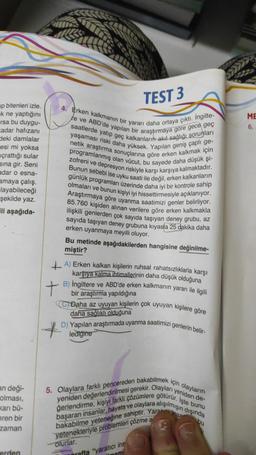 TEST 3
4. Erken kalkmanın bir yararı daha ortaya çıktı. İngilte-
re ve ABD'de yapılan bir araştırmaya göre gece geç
saatlerde yatıp geç kalkanların akıl sağlığı sorunları
yaşaması riski daha yüksek. Yapılan geniş çaplı ge-
netik araştırma sonuçlarına göre erken kalkmak için
programlanmış olan vücut, bu sayede daha düşük şi-
zofreni ve depresyon riskiyle karşı karşıya kalmaktadır.
Bunun sebebi ise uyku saati ile değil, erken kalkanların
günlük programları üzerinde daha iyi bir kontrole sahip
olmaları ve bunun kişiyi iyi hissettirmesiyle açıklanıyor.
Araştırmaya göre uyanma saatimizi genler belirliyor.
85.760 kişiden alınan verilere göre erken kalkmakla
ilişkili genlerden çok sayıda taşıyan deney grubu, az
sayıda taşıyan deney grubuna kıyasla 25 dakika daha
erken uyanmaya meyilli oluyor.
Bu metinde aşağıdakilerden hangisine değinilme-
miştir?
A) Erken kalkan kişilerin ruhsal rahatsızlıklarla karşı
karşıya kalma ihtimallerinin daha düşük olduğuna
B) İngiltere ve ABD'de erken kalkmanın yararı ile ilgili
bir araştırma yapıldığına
C) Daha az uyuyan kişilerin çok uyuyan kişilere göre
daha sağlıklı olduğuna
D) Yapılan araştırmada uyanma saatimizi genlerin belir-
lediğine
5. Olaylara farklı pencereden bakabilmek için olayların
yeniden değerlendirilmesi gerekir. Olayları yeniden de-
ğerlendirme, kişiyi farklı çözümlere götürür. İşte bunu
başaran insanlar, hayata ve olaylara alışılmışın dışında
bakabilme yeteneğine sahiptir.
yetenekleriyle problemleri
olurlar.
"yaratıcı
ıp bitenleri izle.
k ne yaptığını
rsa bu duygu-
kadar hafızanı
deki damlalar
esi mi yoksa
sına gir. Seni
adar o esna-
smaya çalış.
layabileceği
şekilde yaz.
ili aşağıda-
an deği-
olması,
arı bü-
ren bir
zaman
erden
ME
6.